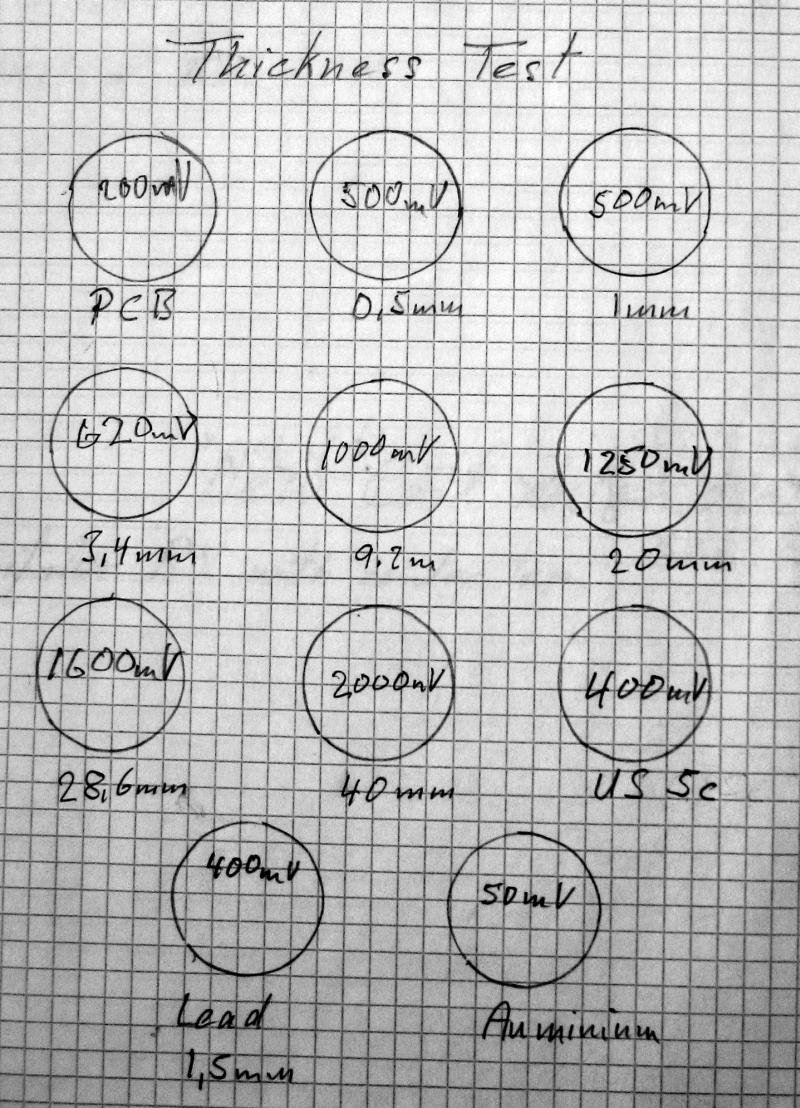 Thickness Test
200mV 500mV 500mV
PCB 0,5mm 1mm
620mV 1000mV 1250mV
3,4mm 9.2m 20mm
1600mV 2000mV 400mV
28,6mm 40mm US 5c
400mV 50mV
Lead Auminium
1,5mm